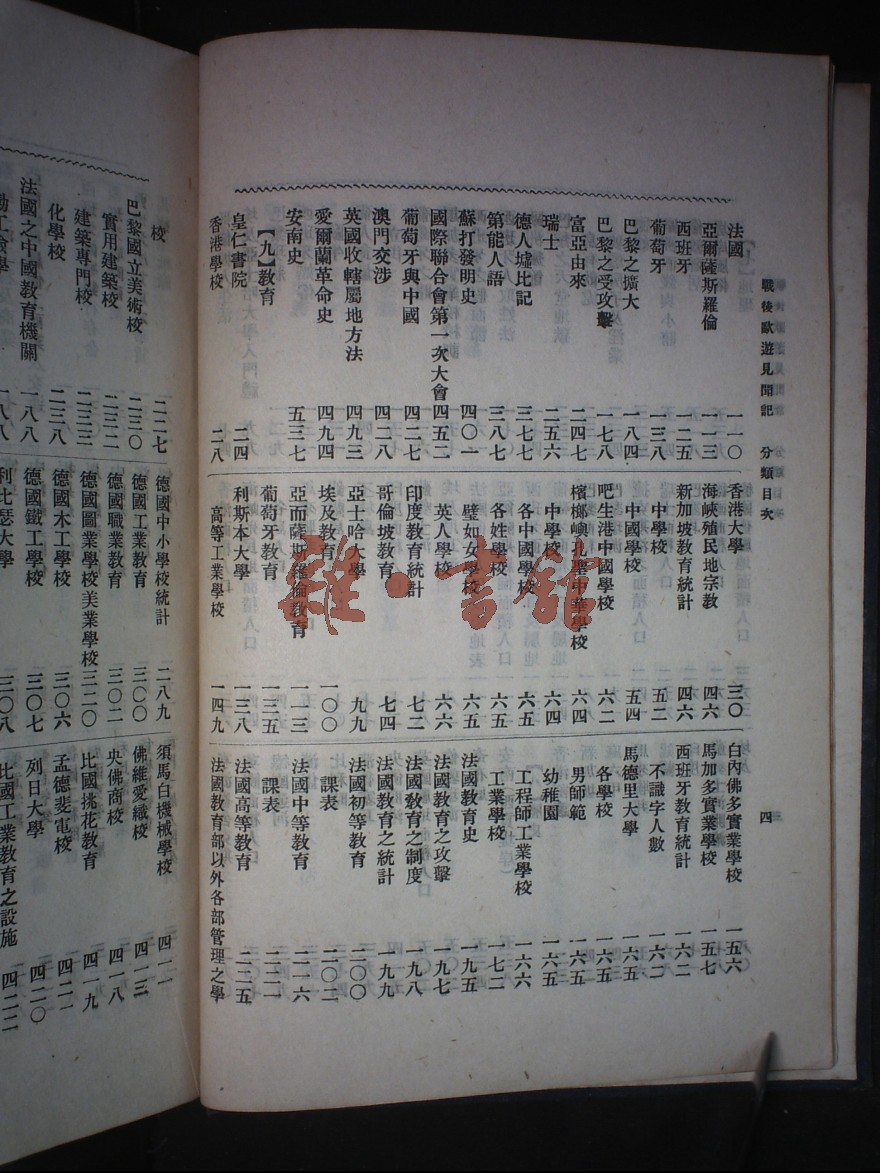 戰後歐遊見聞記 分類目次 四
法國 一一〇
亞爾薩斯羅倫 一一三
西班牙 一二五
葡萄牙 一三八
巴黎之擴大 一八四
巴黎之受攻擊 一七八
富亞由來 二四七
瑞士 二五六
德人墟比記 三七七
第能人語 三八七
蘇打發明史 四〇一
國際聯合會第一次大會 四五二
葡萄牙與中國 四二七
澳門交涉 四二八
英國收轄屬地方法 四九三
愛爾蘭革命史 四九四
安南史 五三七
【九】教育
皇仁書院 二四
香港學校 二八
香港大學 三〇
海峽殖民地宗教 四六
新加坡教育統計 四六
中學校 五二
中國學校 五四
吧生港中國學校 六二
檳榔嶼孔聖中華學校 六四
中學校 六四
各中國學校 六五
各姓學校 六五
璧如女學校 六五
英人學校 六六
印度教育統計 七二
哥倫坡教育 七四
亞士哈大學 九九
埃及教育 一〇〇
亞而薩斯羅倫教育 一一三
葡萄牙教育 一三五
利斯本大學 一三八
高等工業學校 一四九
白內佛多實業學校 一五六
馬加多實業學校 一五七
西班牙教育統計 一六二
不識字人數 一六二
馬德里大學 一六五
各學校 一六五
男師範 一六五
幼稚園 一六五
工程師工業學校 一六六
工業學校 一七二
法國教育史 一九五
法國教育之攻擊 一九七
法國教育之制度 一九八
法國教育之統計 一九九
法國初等教育 二〇〇
課表 二〇二
法國中等教育 二一六
課表 二二一
法國高等教育 二二五
法國教育部以外各部管理之學
校 二二七
巴黎國立美術校 二三〇
實用建築校 二三二
建築專門校 二三三
化學校 二三八
法國之中國教育機關 一八八
勤工儉學 一八八
德國中小學校統計 二八九
德國工業教育 三〇〇
德國職業教育 三〇二
德國圖業學校美業學校 三二〇
德國木工學校 三〇六
德國鐵工學校 三〇七
利比瑟大學 三〇八
須馬白機械學校 四一一
佛維愛織校 四一三
央佛商校 四一八
比國挑花教育 四一九
孟德斐電校 四二一
列日大學 四二〇
比國工業教育之設施 四二二
雜·書館